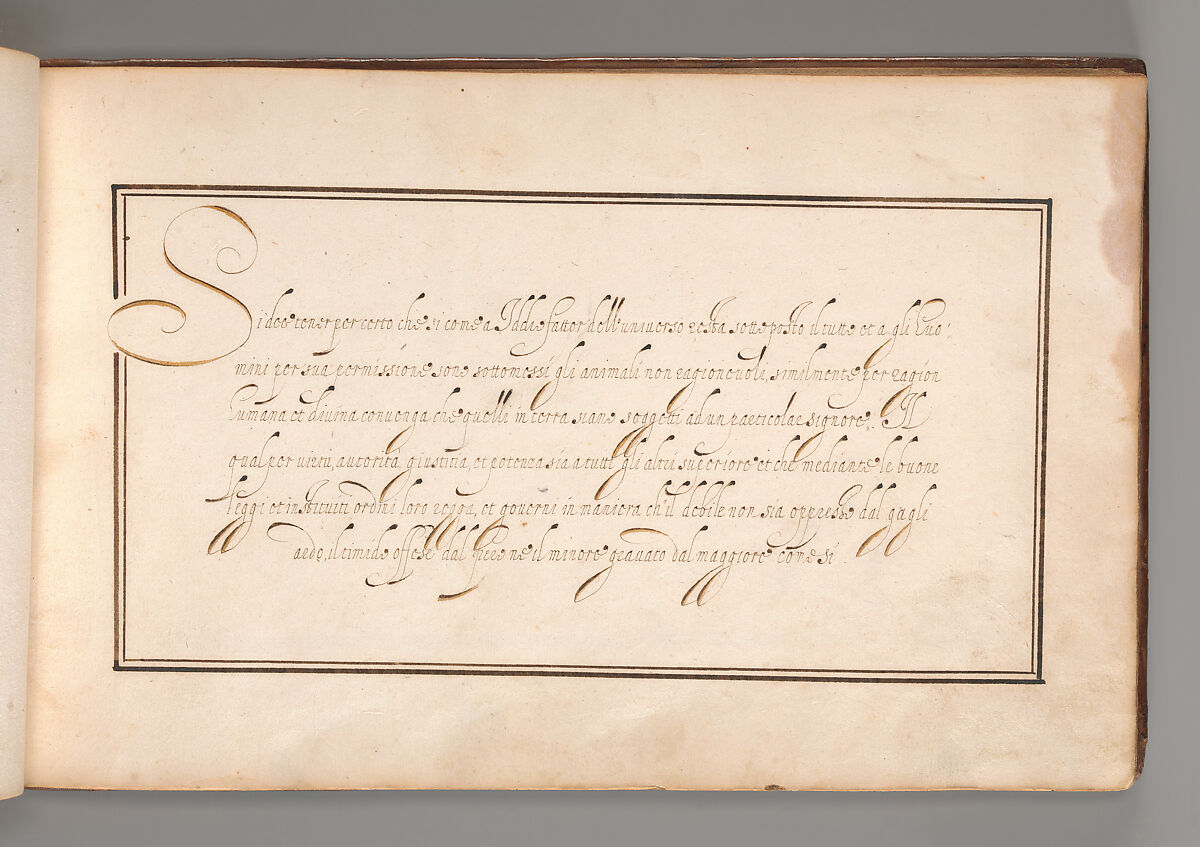 Si dee tener per certo che si come a Iddio fattor dell'universo resta sotteposto il tutto et a gli huo:
mini per sua permissione sono sottomessi gli animali non ragionevoli, similmente per ragion
humana et divina convenga che quelli in terra siano soggetti ad un particolar signore, Il
qual per virtù, autorità, giustitia, et potenza sia a tutti gli altri superiore et che mediante le buone
leggi et instituiti ordini loro regga, et governi in maniera ch'il debile non sia oppresso dal gagli
ardo, il timido offeso dal fiero ne il minore gravato dal maggiore come si.